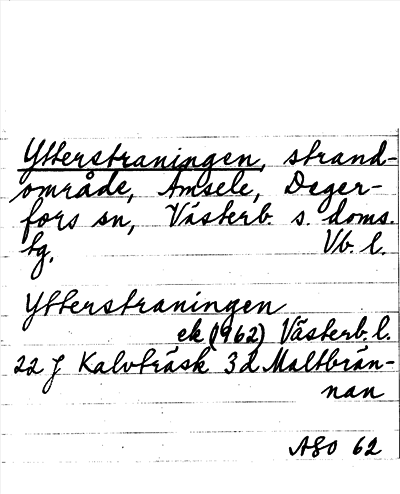 Ytterstraningen, strand-
område, Åmsele, Deger-
fors sn, Västerb. s. doms.
tg. Vb. l.
Ytterstraningen
ek (1962) Västerb. l.
22 J Kalvträsk 3 d Maltbrän-
nan
ASO 62